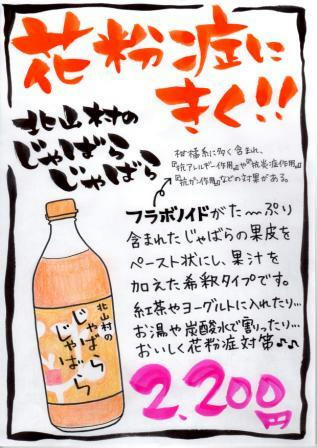 花粉症に
きく!!
北山村の
じゃばら
じゃばら
柑橘系に多く含まれ、
『抗アレルギー作用』や『抗炎症作用』
『抗ガン作用』などの効果がある。
フラボノイドがた〜ぷり
含まれたじゃばらの果皮を
ペースト状にし、果汁を
加えた希釈タイプです。
紅茶やヨーグルトに入れたり…
お湯や炭酸水で割ったり…
おいしく花粉症対策♪♪
北山村の
じゃばら
じゃばら
2,200円